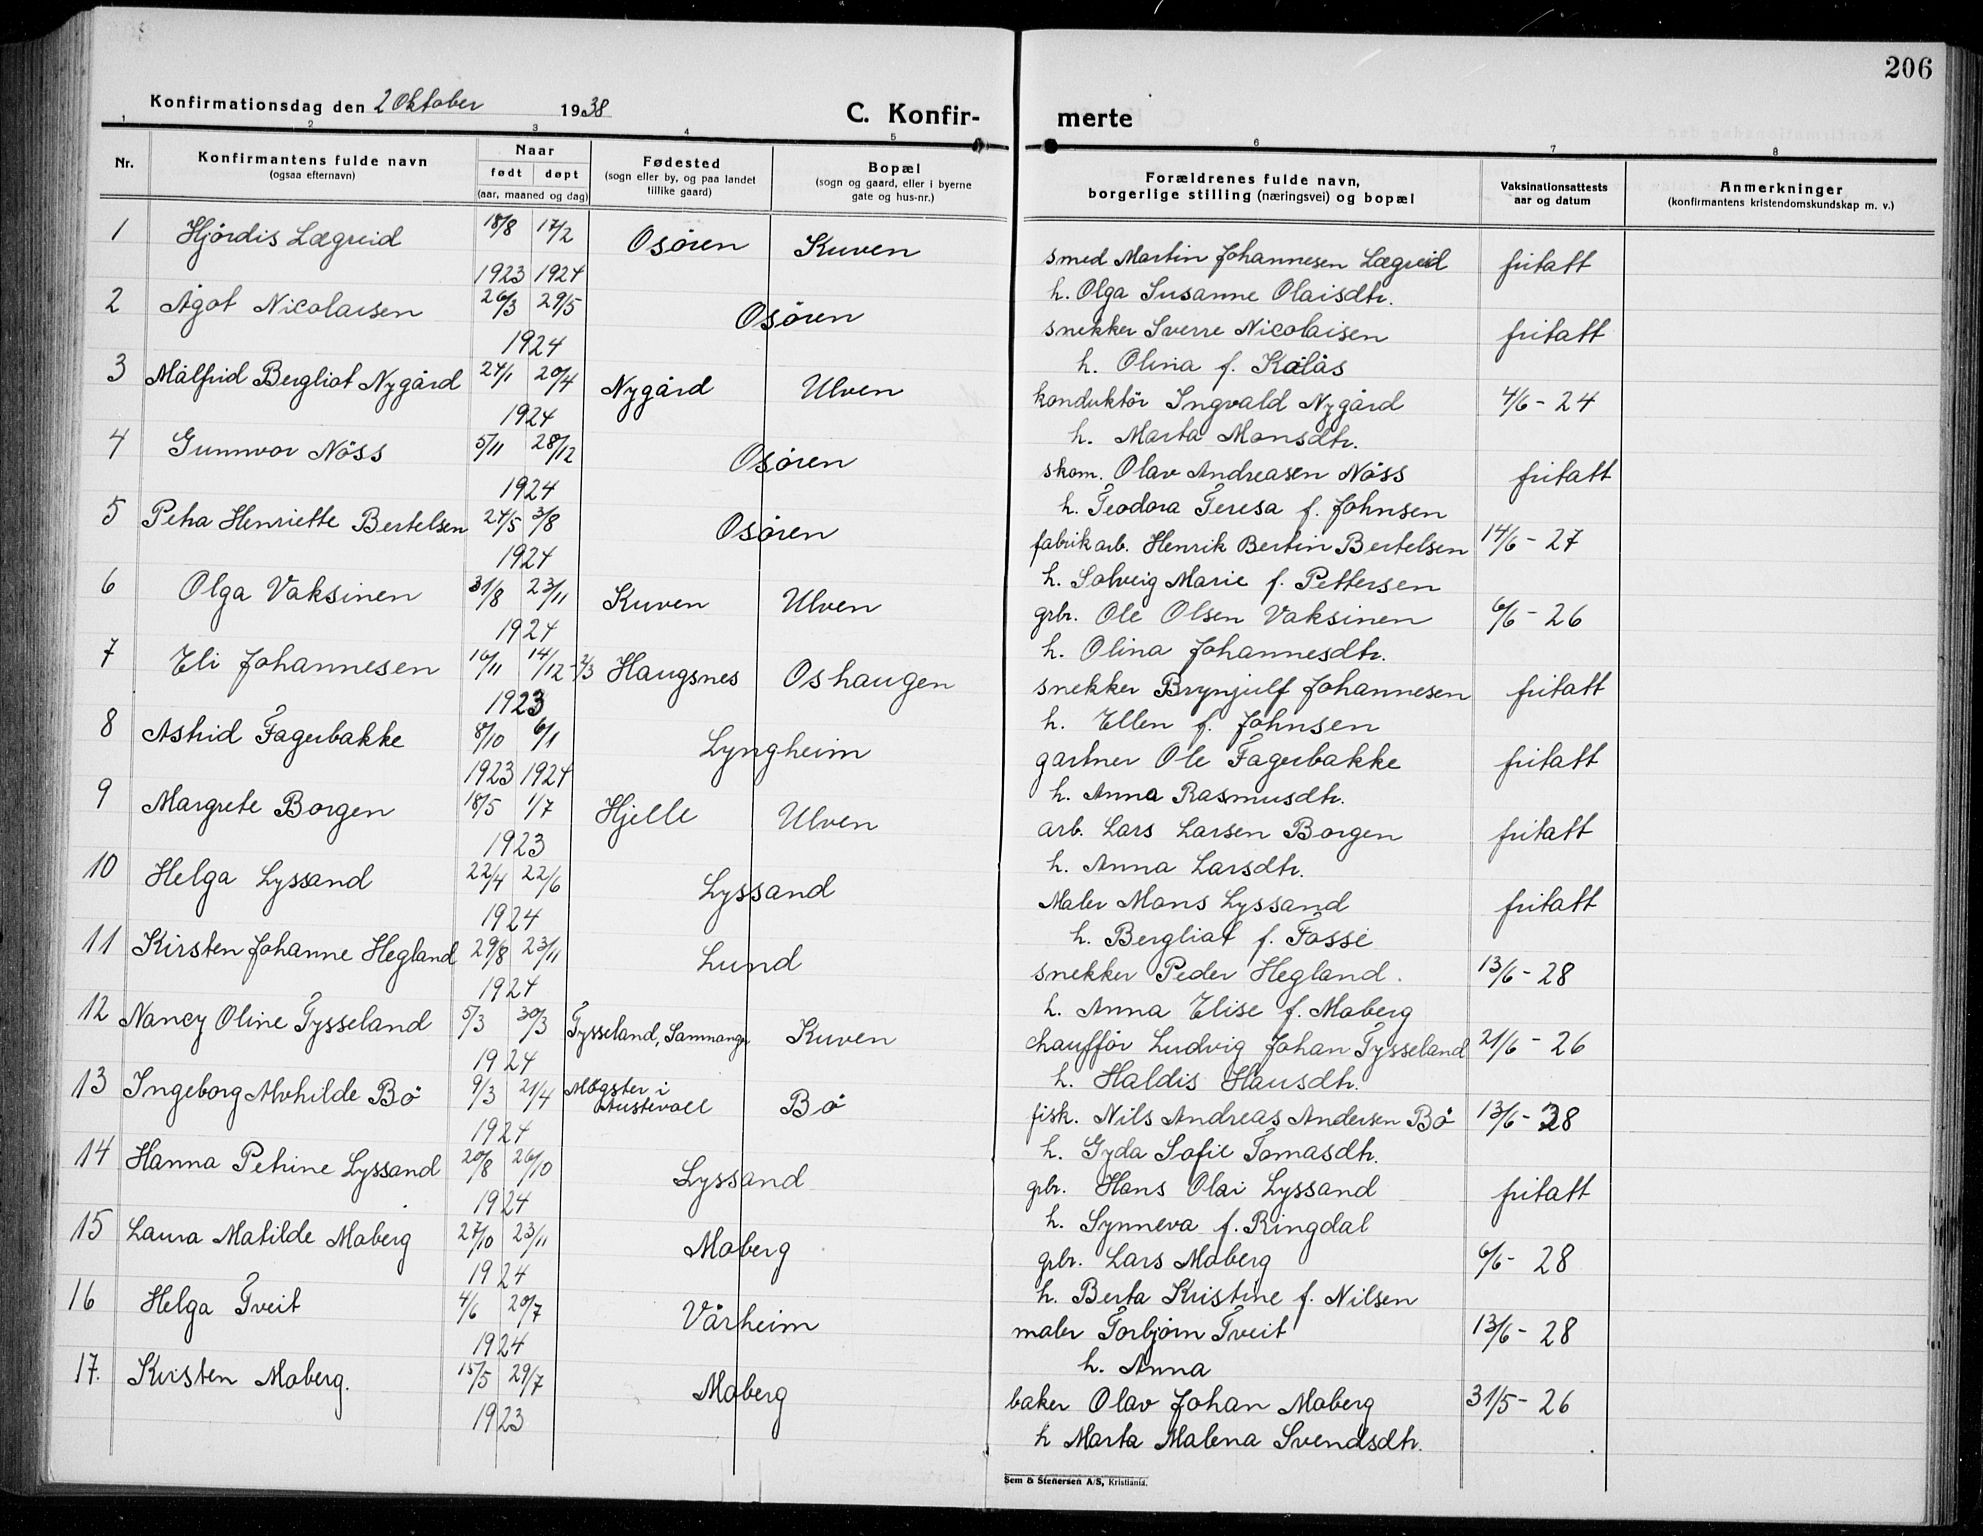 206
Konfirmationsdag den 2 Oktober 1938
C. Konfir- merte
1 2 3 4 5 6 7 8
Nr.
Konfirmantens fulde navn
(ogsaa efternavn)
Naar
født døpt
(aar, maaned og dag)
Fødested
(sogn eller by, og paa landet
tillike gaard)
Bopæl
(sogn og gaard, eller i byerne
gate og hus-nr.)
Forældrenes fulde navn,
borgerlige stilling (næringsvei) og bopæl
Vaksinationsattests
aar og datum
Anmerkninger
(konfirmantens kristendomskundskap m. v.)
1 Hjördis Lægreid 18/8 17/2 Osören Kuven smed Martin Johannesen Lægreid fritatt
1923 1924 h. Olga Susanne Olaisdtr.
2 Ågot Nicolaisen 26/3 29/5 Osören snekker Sverre Nicolaisen fritatt
1924 h. Olina f. Kolås
3 Målfrid Bergliot Nygård 24/1 20/4 Nygård Ulven konduktör Ingvald Nygård 4/6 - 24
1924 h. Marta Monsdtr.
4 Gunnvor Nöss 5/11 28/12 Osören skom. Olav Andreasen Nöss fritatt
1924 h. Teodora Teresa f. Johnsen
5 Petra Henriette Bertelsen 24/5 3/8 Osören fabrikarb. Henrik Bertin Bertelsen 14/6 - 27
1924 h. Solveig Marie f. Pettersen
6 Olga Vaksinen 31/8 23/11 Kuven Ulven grbr. Ole Olsen Vaksinen 6/6 - 26
1924 h. Olina Johannesdtr.
7 Eli Johannesen 16/11 14/12 - 2/3 Haugsnes Oshaugen snekker Brynjulf Johannesen fritatt
1923 h. Ellen f. Johnsen
8 Astrid Fagerbakke 8/10 6/1 Lyngheim gartner Ole Fagerbakke fritatt
1923 1924 h. Anna Rasmusdtr.
9 Margrete Borgen 18/5 1/7 Hjelle Ulven arb. Lars Larsen Borgen fritatt
1923 h. Anna Larsdtr.
10 Helga Lyssand 22/4 22/6 Lyssand Maler Mons Lyssand fritatt
1924 h. Bergliot f. Fosse
11 Kirsten Johanne Hegland 29/8 23/11 Lund snekker Peder Hegland. 13/6 - 28
1924 h. Anna Elise f. Moberg
12 Nancy Oline Tysseland 5/3 30/3 Tysseland, Samnanger Kuven chaufför Ludvig Johan Tysseland 21/6 - 26
1924 h. Haldis Hansdtr.
13 Ingeborg Alvhilde Bö 9/3 21/4 Mögster i Austevoll Bö fisk. Nils Andreas Andersen Bö 13/6 - 28
1924 h. Gyda Sofie Tomasdtr.
14 Hanna Petrine Lyssand 20/8 26/10 Lyssand grbr. Hans Olai Lyssand fritatt
1924 h. Synneva f. Ringdal
15 Laura Matilde Moberg 27/10 23/11 Moberg grbr. Lars Moberg 6/6 - 28
1924 h. Berta Kristine f. Nilsen
16 Helga Tveit 4/6 20/7 Vårheim maler Torbjörn Tveit 13/6 - 28
1924 h. Anna
17. Kirsten Moberg. 15/5 29/7 Moberg baker Olav Johan Moberg 31/5 - 26
1923 h Marta Malena Svendsdtr.
Sem & Stenersen A/S, Kristiania.